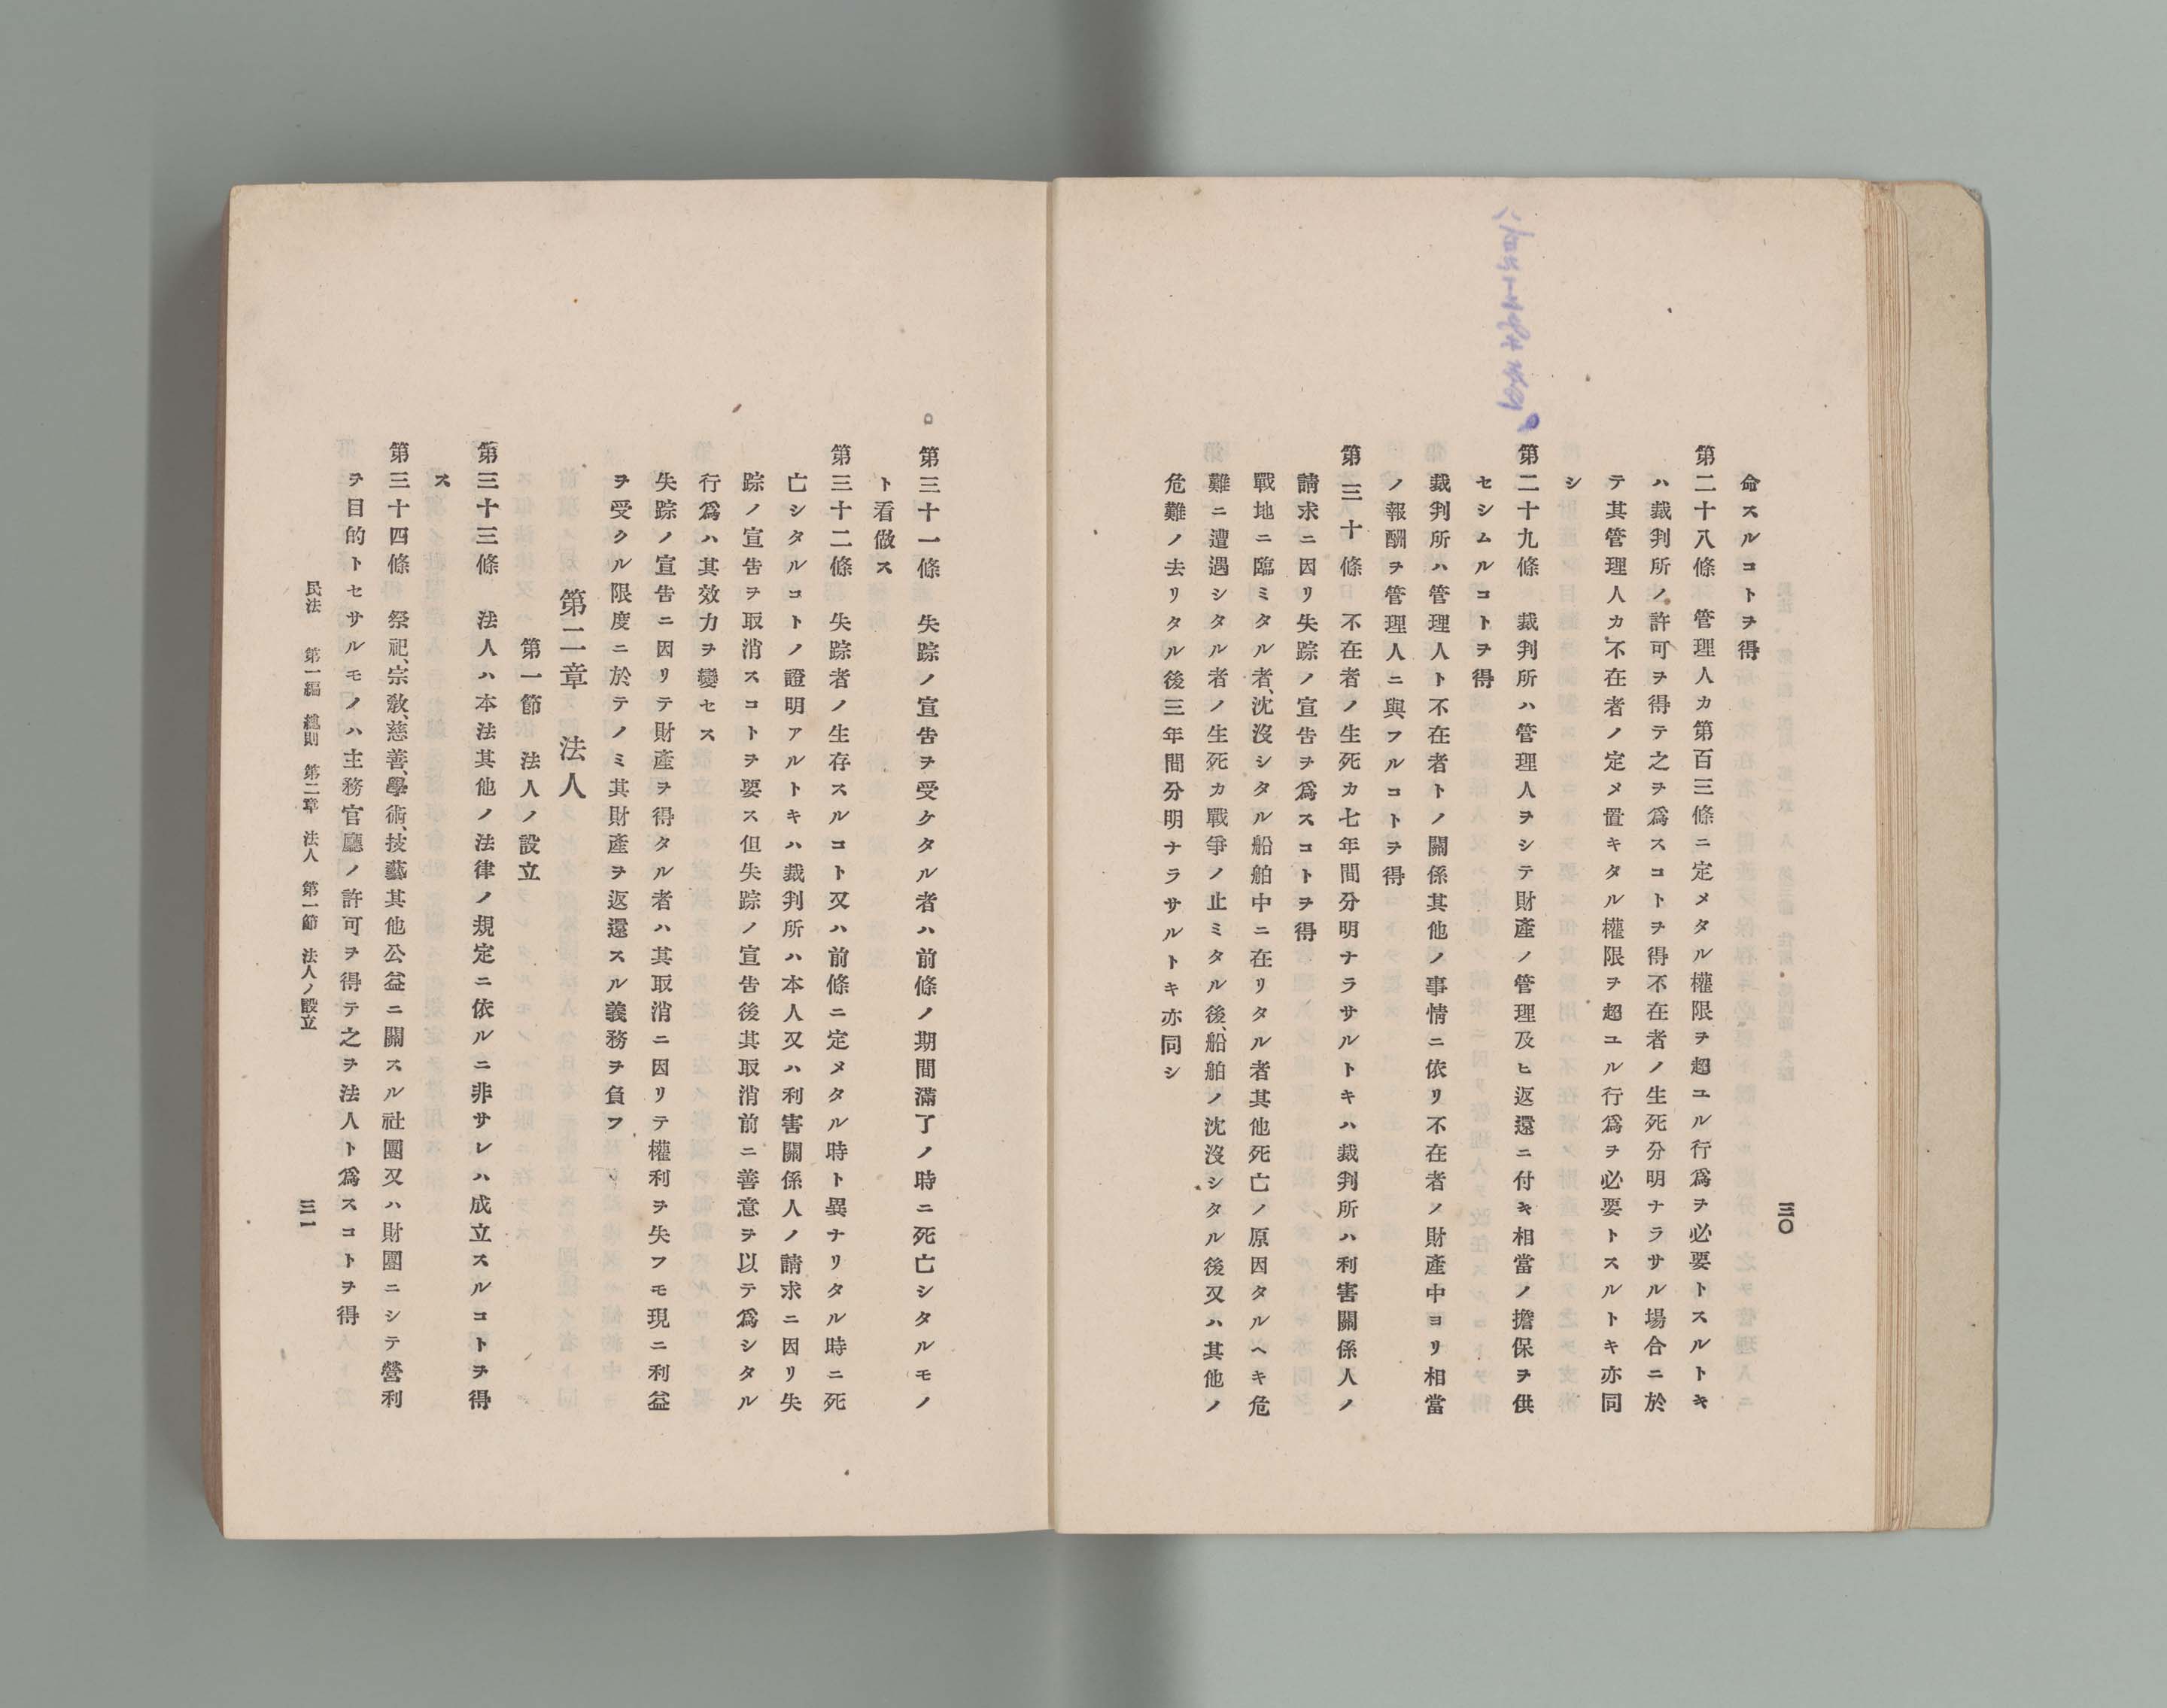 命スルコトヲ得
第二十八條　管理人カ第百三條ニ定メタル權限ヲ超ユル行爲ヲ必要トスルトキ
ハ裁判所ノ許可ヲ得テ之ヲ爲スコトヲ得不在者ノ生死分明ナラサル場合ニ於
テ其管理人カ不在者ノ定メ置キタル權限ヲ超ユル行爲ヲ必要トスルトキ亦同
シ
第二十九條　裁判所ハ管理人ヲシテ財產ノ管理及ヒ返還ニ付キ相當ノ擔保ヲ供
セシムルコトヲ得
裁判所ハ管理人ト不在者トノ關係其他ノ事情ニ依リ不在者ノ財產中ヨリ相當
ノ報酬ヲ管理人ニ與フルコトヲ得
第三十條　不在者ノ生死カ七年間分明ナラサルトキハ裁判所ハ利害關係人ノ
請求ニ因リ失踪ノ宣告ヲ爲スコトヲ得
戰地ニ臨ミタル者、沈沒シタル船舶中ニ在リタル者其他死亡ノ原因タルヘキ危
難ニ遭遇シタル者ノ生死カ戰爭ノ止ミタル後、船舶ノ沈沒シタル後又ハ其他ノ
危難ノ去リタル後三年間分明ナラサルトキ亦同シ
三〇
第三十一條　失踪ノ宣告ヲ受ケタル者ハ前條ノ期間滿了ノ時ニ死亡シタルモノ
ト看做ス
第三十二條　失踪者ノ生存スルコト又ハ前條ニ定メタル時ト異ナリタル時ニ死
亡シタルコトノ證明アルトキハ裁判所ハ本人又ハ利害關係人ノ請求ニ因リ失
踪ノ宣告ヲ取消スコトヲ要ス但失踪ノ宣告後其取消前ニ善意ヲ以テ爲シタル
行爲ハ其效力ヲ變セス
失踪ノ宣告ニ因リテ財產ヲ得タル者ハ其取消ニ因リテ權利ヲ失フモ現ニ利益
ヲ受クル限度ニ於テノミ其財產ヲ返還スル義務ヲ負フ
第二章　法人
第一節　法人ノ設立
第三十三條　法人ハ本法其他ノ法律ノ規定ニ依ルニ非サレハ成立スルコトヲ得
ス
第三十四條　祭祀、宗敎、慈善、學術、技藝其他公益ニ關スル社團又ハ財團ニシテ營利
ヲ目的トセサルモノハ主務官廳ノ許可ヲ得テ之ヲ法人ト爲スコトヲ得
民法　第一編　總則　第二章　法人　第一節　法人ノ設立
三一